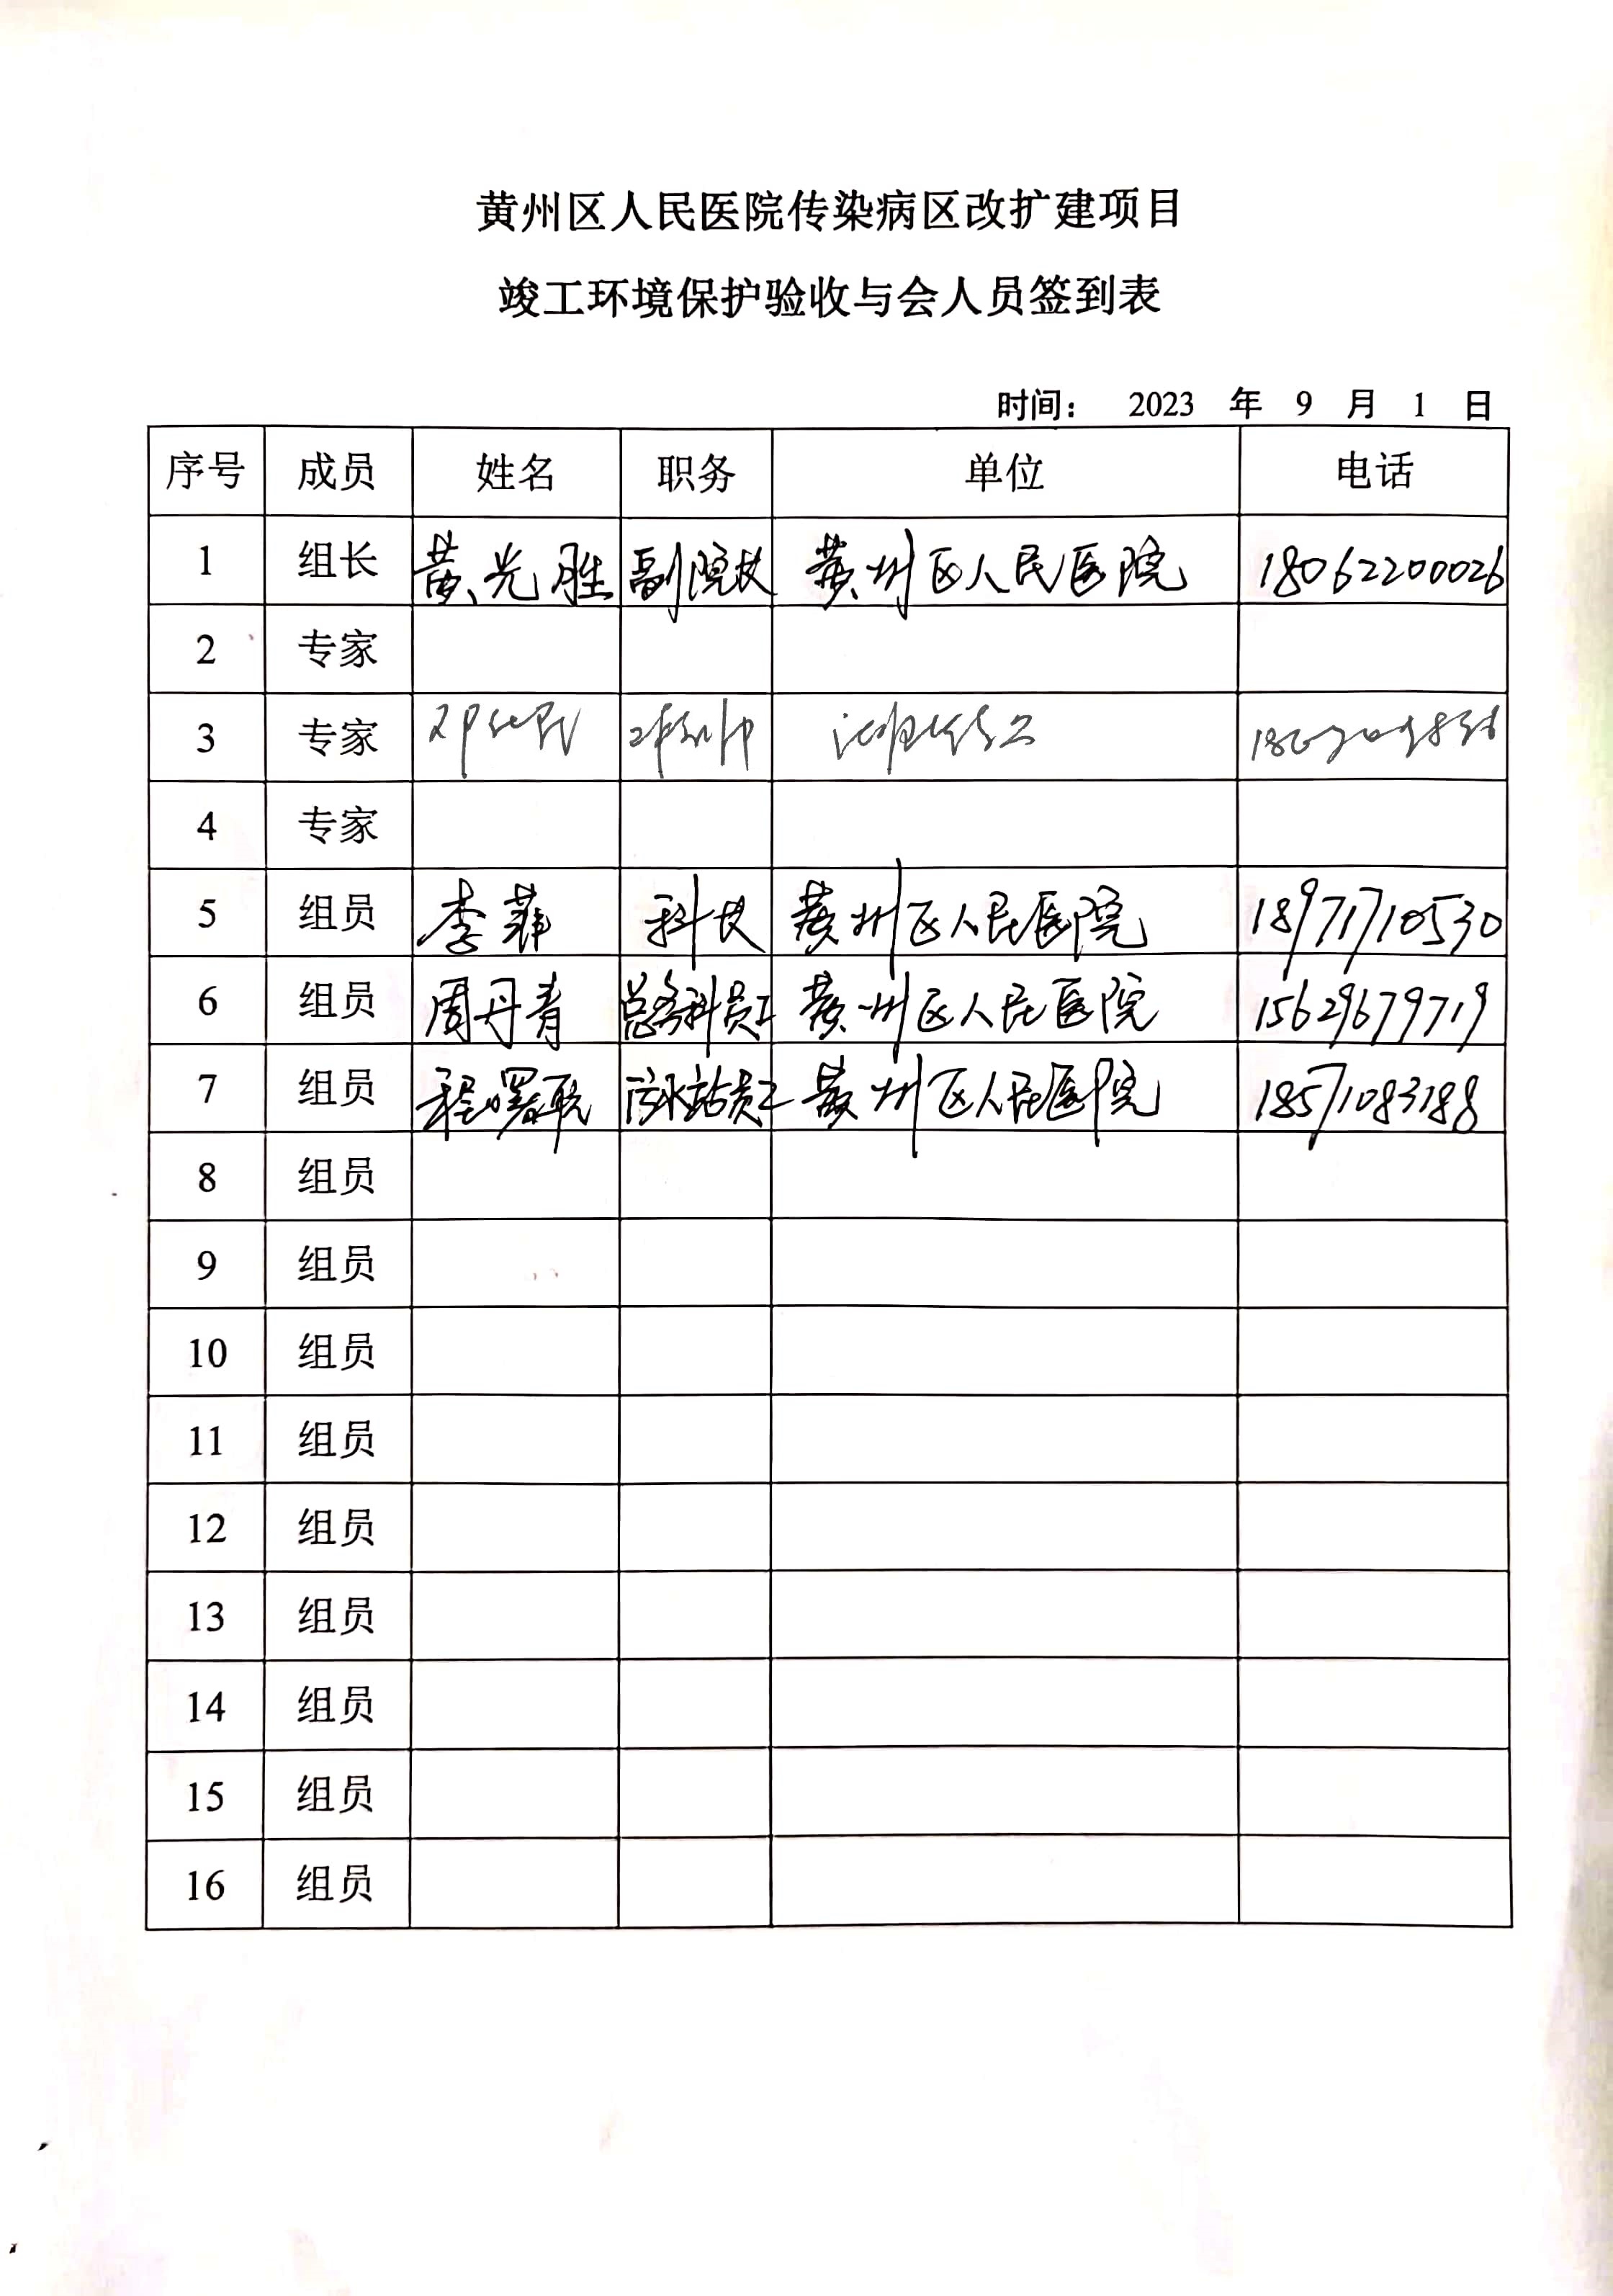 黄州区人民医院传染病区改扩建项目
竣工环境保护验收与会人员签到表
时间： 2023 年 9 月 1 日
序号 成员 姓名 职务 单位 电话
1 组长 黄光胜 副院长 黄州区人民医院 18062200026
2 专家
3 专家
4 专家
5 组员 李菲 科长 黄州区人民医院 18971710530
6 组员 周丹青 总务科员工 黄州区人民医院 15629679719
7 组员 程曙 污水站员工 黄州区人民医院 18571083188
8 组员
9 组员
10 组员
11 组员
12 组员
13 组员
14 组员
15 组员
16 组员